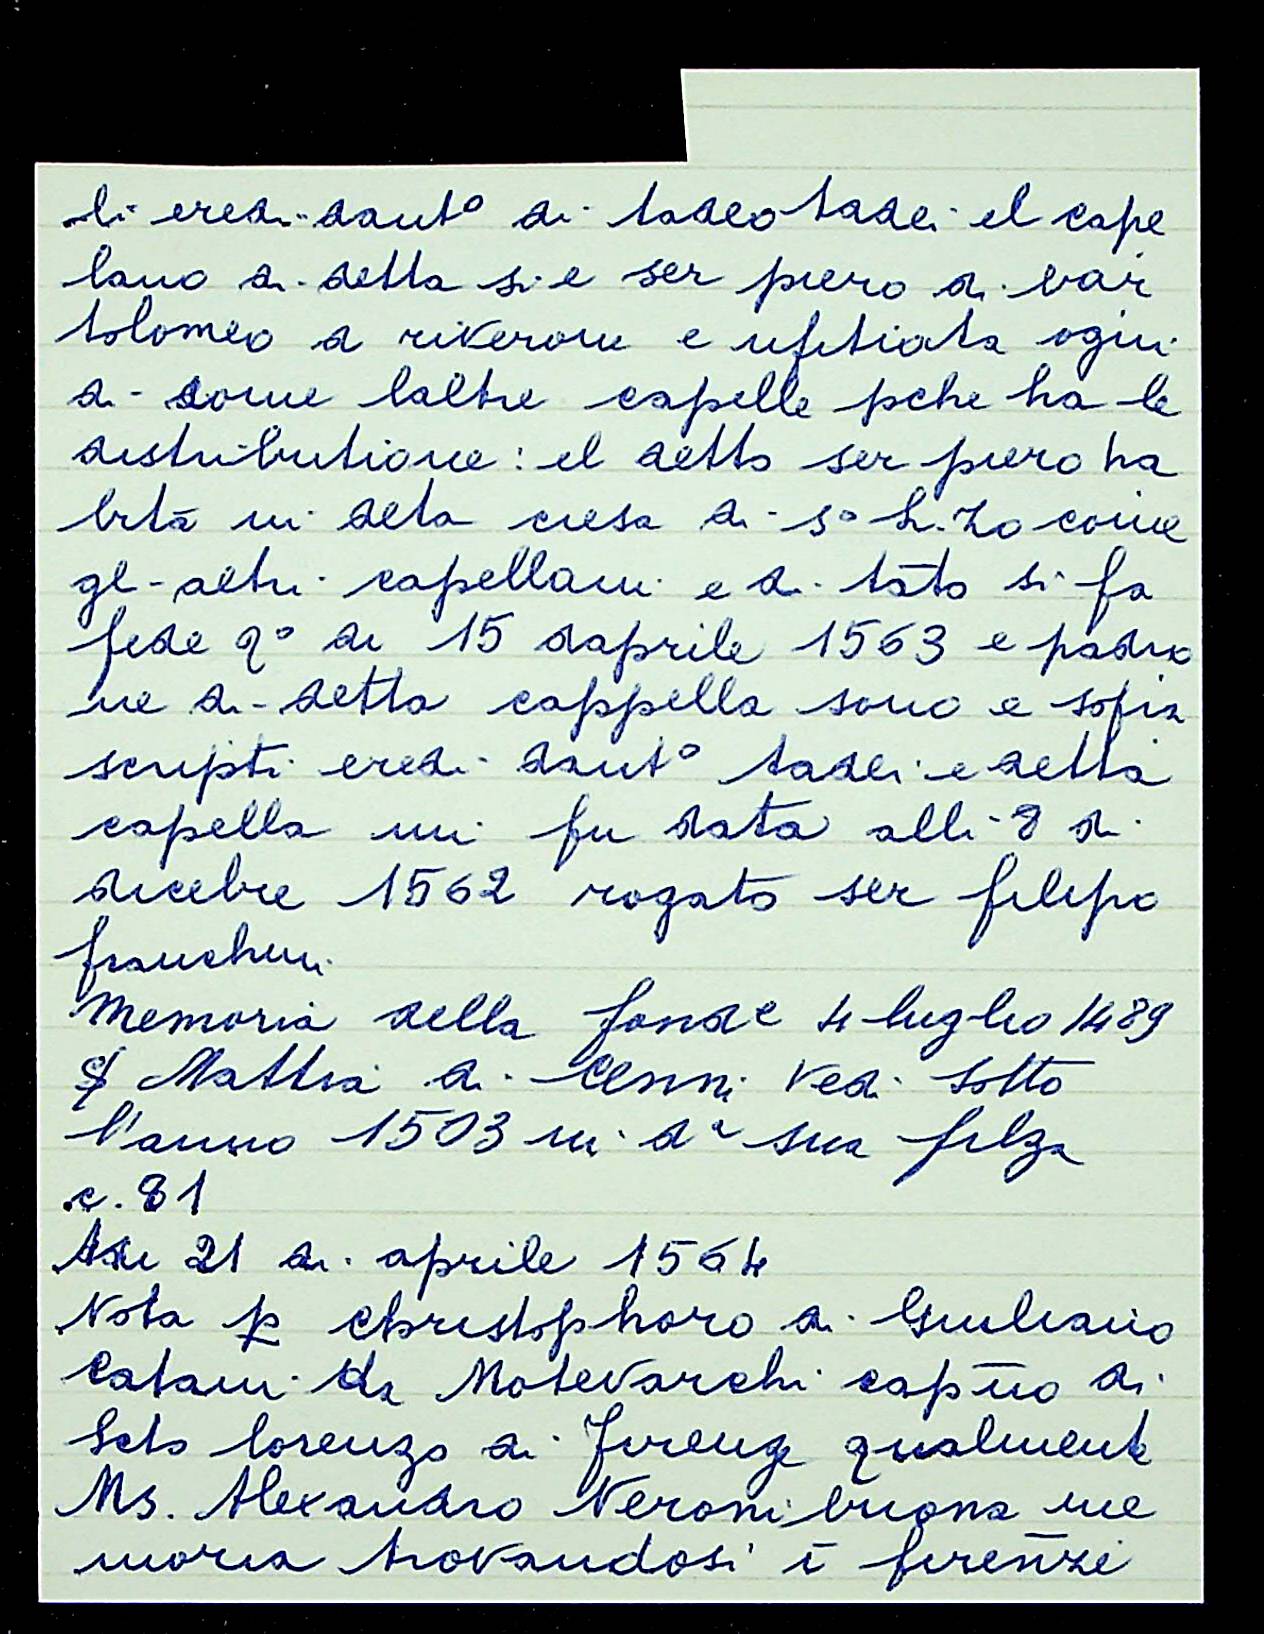 li eredi dantº di tadeo tadei el cape
lano di detta si e ser piero di bar
tolomeo a riverone e ufitiata ogni
di come laltre capelle pche ha le
distributione: el detto ser piero ha
bitā in deta ciesa di sº L.zo come
gl altri capellani e di tāto si fa
fede qº di 15 daprile 1563 e padro
ne di detta cappella sono e sopra
scripti eredi dantº tadei e detta
capella mi fu data alli 8 di
dicebre 1562 rogato ser filipo
franchini
Memoria della fondᵉ 4 luglio 1489
Mattia di Cenni vedi sotto
l'anno 1503 in dᵃ sua filza
c. 81
Adi 21 di aprile 1564
Nota p christophoro di Giuliano
Catani da Motevarchi cap̄no di
Scto lorenzo di Firenze qualmente
Ms. Alexandro Neroni buona me
moria trovandosi ī firenze